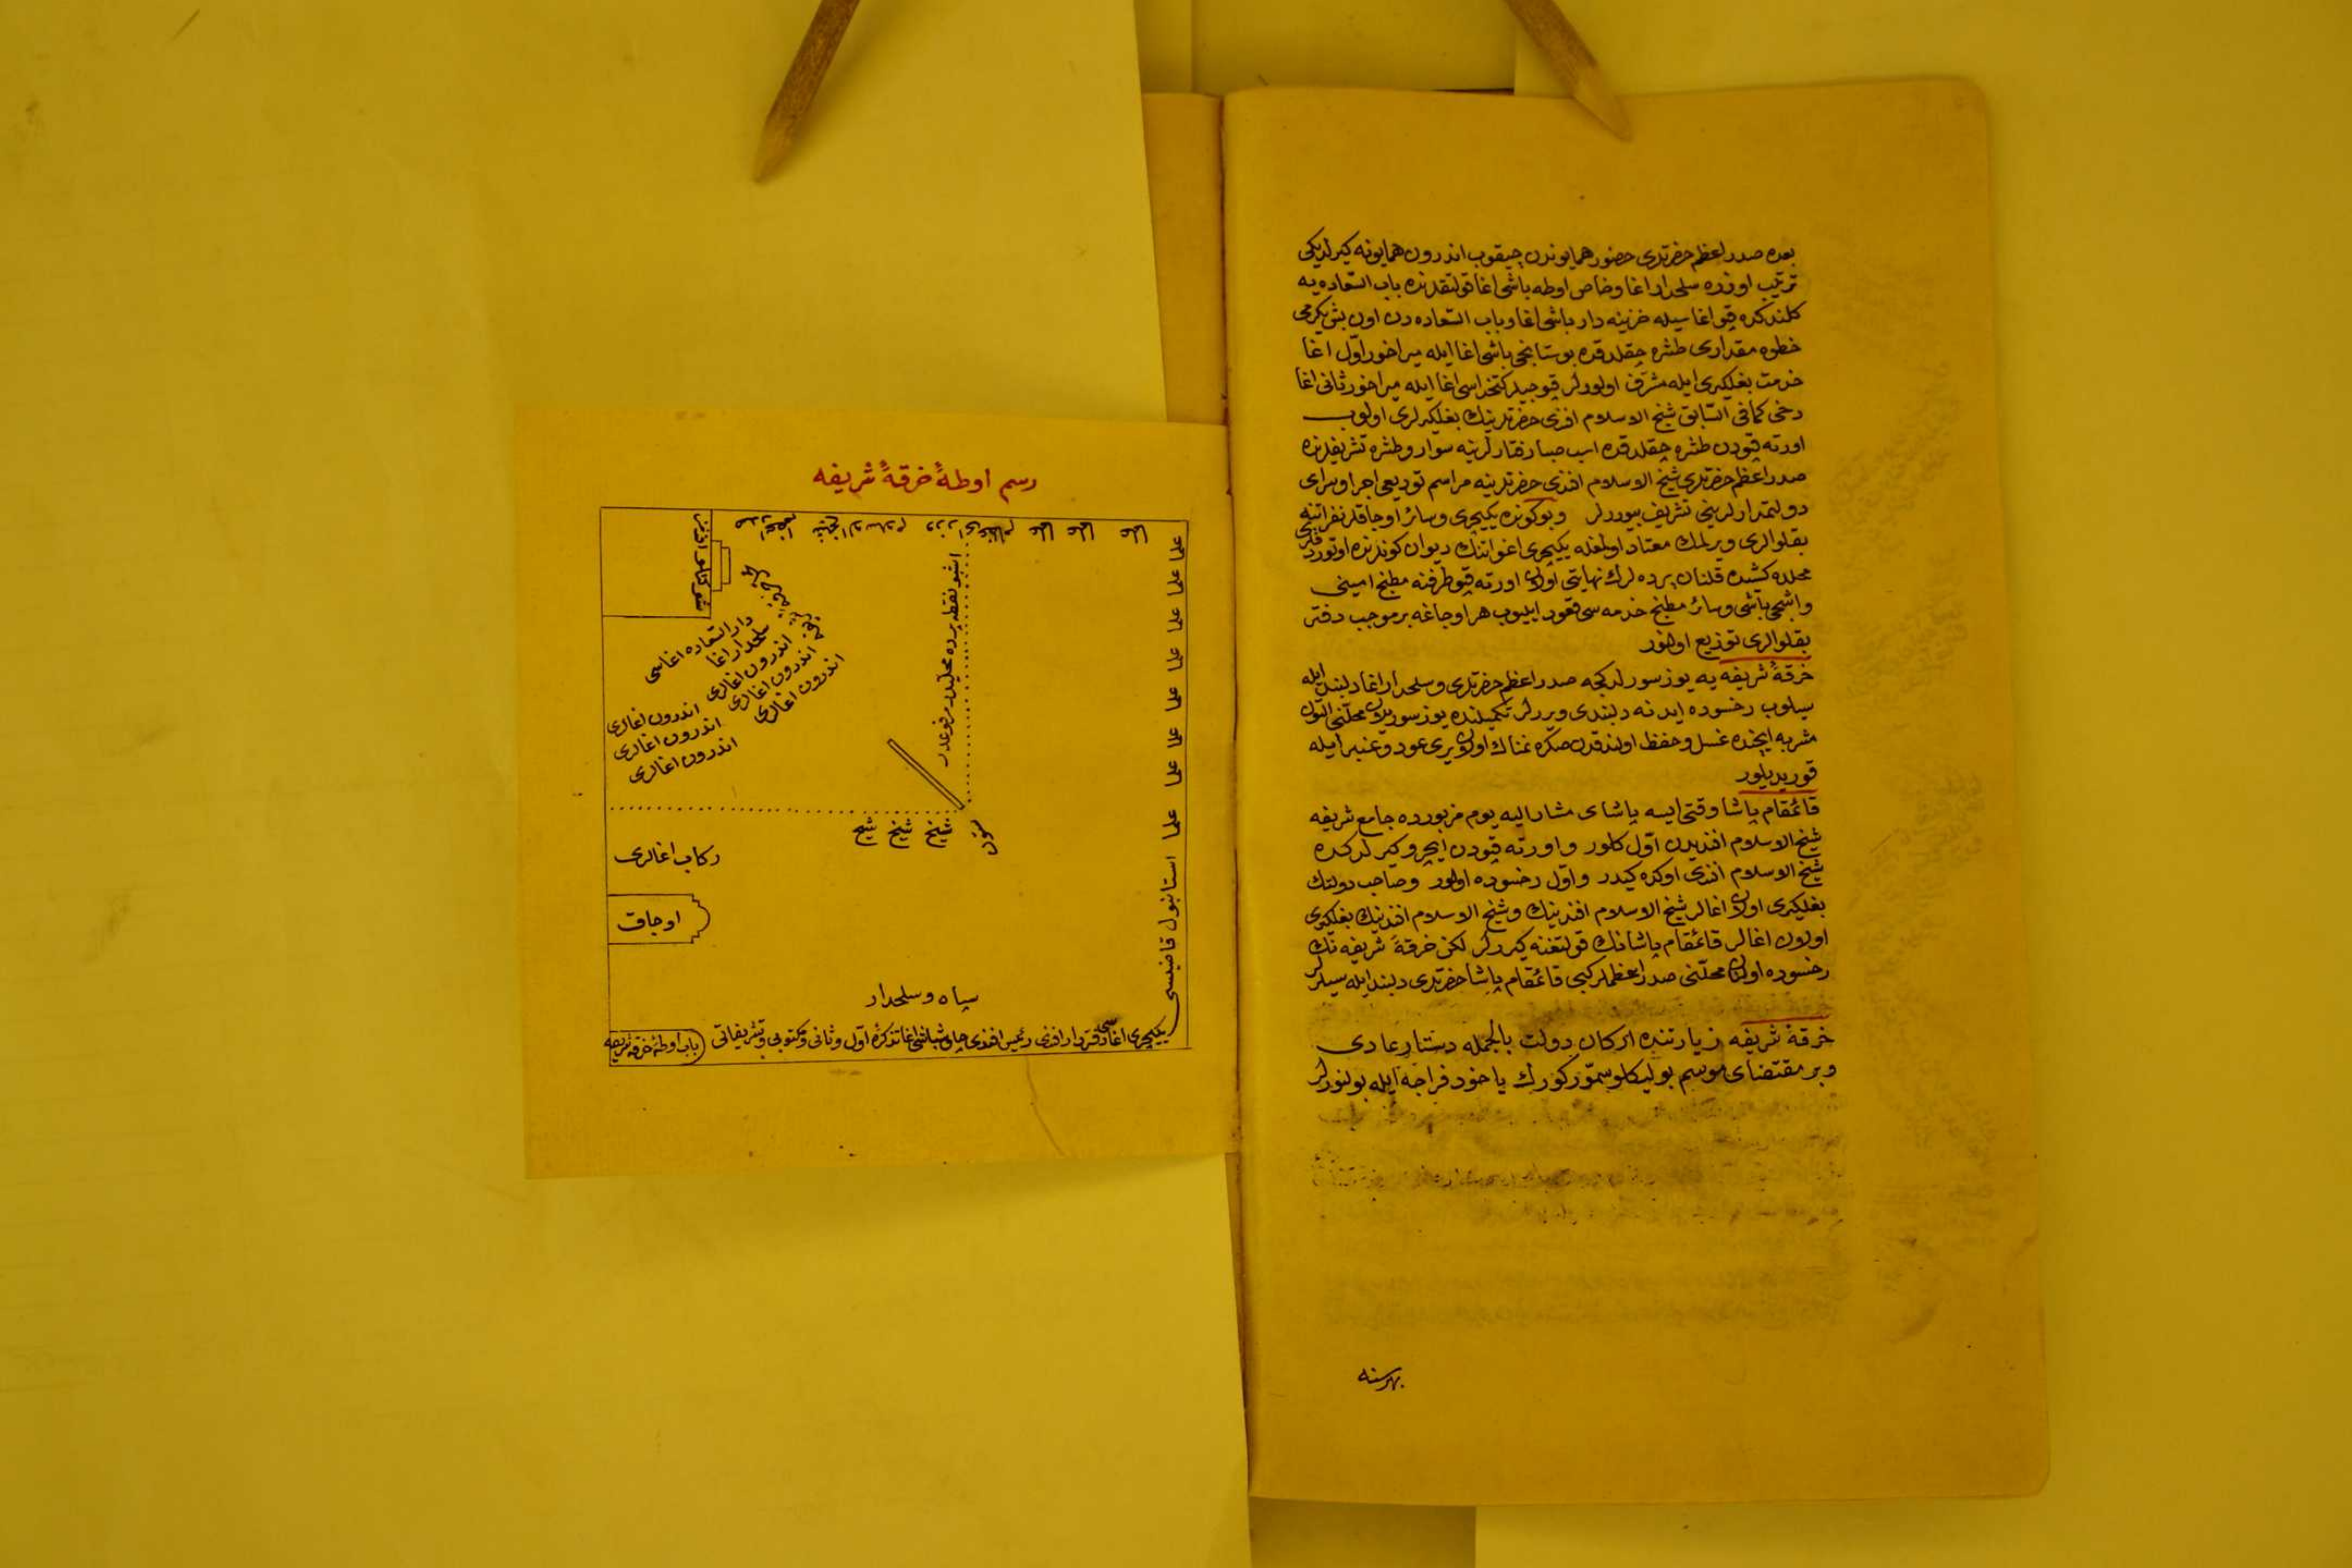 بعده صدر اعظم حضرتلری حضور همایوندن چیقوب اندرون همایونه کیرلدیکی
ترتیب اوزره سلحدار اغا و خاص اوطه باشی اغا قولتقلرنده باب السعاده یه
کلندکده قپو اغاسیله خزینه دار باشی اغا و باب السعاده دن اون بش یکرمی
خطوه مقداری طشره چقلدقده بوستانجی باشی اغا ایله میراخور اول اغا
خدمت بغلکیری ایله مشرف اولورلر قپوجیلر کتخداسی اغا ایله میراخور ثانی اغا
دخی کما فی السابق شیخ الاسلام افندی حضرتلرینك بغلکیرلری اولوب
اورته قپودن طشره چقلدقده اسب صبا رفتارلرینه سوار و طشره تشریفلرنده
صدر اعظم حضرتلری شیخ الاسلام افندی حضرتلرینه مراسم تودیعی اجرا و سرای
دولتمدارلرینی تشریف بیوررلر وبو کونده یکیچری و سائر اوجاقلر نفراتنه
بقلوالری ویرلمك معتاد اولمغله یکیچری اغواتنك دیوان کونلرنده اوتوردقلری
محلده کشیده قلنان پرده لرك نهایتی اولان اورته قپو طرفنه مطبخ امینی
واشچی باشی و سائر مطبخ خدمه سی قعود ایلیوب هر اوجاغه بر موجب دفتر
بقلوالری توزیع اولنور
خرقهٔ شریفه یه یوز سورلدکجه صدر اعظم حضرتلری و سلحدار اغا دلبند ایله
سیلوب رخسوده ایدنه دلبندی ویررلر تکمیلنده یوز سوریلان محلنی التون
مشربه ایچنده غسل و حفظ اولندقدن صکره نمناك اولان یری عود و عنبر ایله
قوریدیلور
قائمقام پاشا وقتی ایسه پاشای مشار الیه یوم مزبورده جامع شریفه
شیخ الاسلام افندیدن اول کلور و اورته قپودن ایچرو کیرلدکده
شیخ الاسلام افندی اوکره کیدر و اول رخسوده اولور وصاحب دولتك
بغلکیری اولان اغالر شیخ الاسلام افندینك و شیخ الاسلام افندینك بغلکیری
اولان اغالر قائمقام پاشانك قولتغنه کیررلر لکن خرقهٔ شریفه نك
رخسوده اولان محلنی صدر اعظملر کبی قائمقام پاشا حضرتلری دلبند ایله سیلرلر
خرقهٔ شریفه زیارتنده ارکان دولت بالجمله دستار عادی
وبر مقتضای موسم بولیکلو سمور کورك یاخود فراجه ایله بولنورلر
بهر سنه
رسم اوطهٔ خرقهٔ شریفه
صدر اعظم
شیخ الاسلام
وزرای عظام
علما علما علما علما
علما علما علما علما علما علما علما علما استانبول قاضیسی
شوکتلو افندمز
اشبو نقطه پرده محللریدر مرفوعدر
دار السعاده اغاسی
سلحدار اغا
اندرون اغالری
اندرون اغالری
اندرون اغالری
اندرون اغالری
اندرون اغالری
اندرون اغالری
شیخ شیخ شیخ
ستون
رکاب اغالری
اوجاق
سپاه و سلحدار
یکیچری اغاسی دفتردار افندی رئیس افندی چاوشباشی اغا تذکرهٔ اول و ثانی و مکتوبی و تشریفاتی
باب اوطهٔ خرقهٔ شریفه